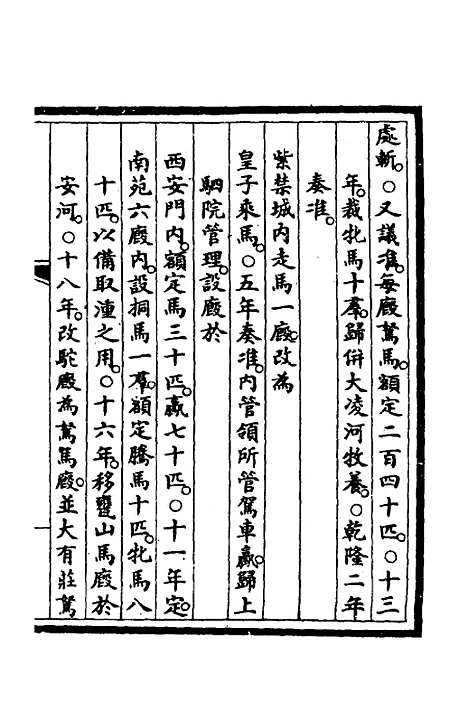 處斬。○又議准。每廄駑馬。額定二百四十匹。○十三
年。裁牝馬十羣。歸併大凌河牧養。○乾隆二年
奏准。
紫禁城內走馬一廄。改為
皇子乘馬。○五年奏准。內管領所管駕車驘。歸上
駟院管理。設廄於
西安門內。額定馬三十匹。驘七十匹。○十一年定。
南苑六廄內。設挏馬一羣。額定騰馬十匹。牝馬八
十匹。以備取湩之用。○十六年。移甕山馬廄於
安河。○十八年。改駝廄為駑馬廄。並大有莊駑